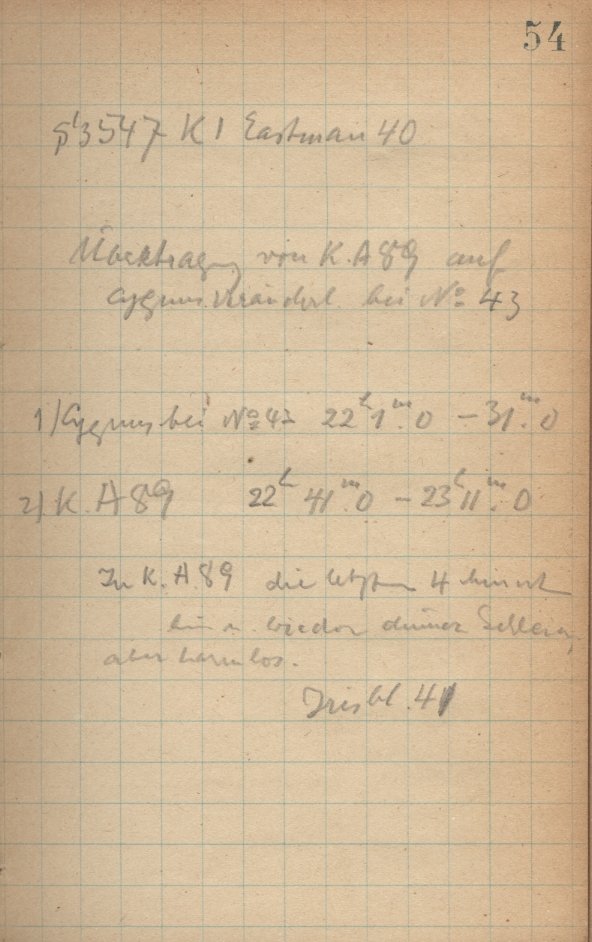 54
3547 K I Eastman 40
Übertragung von K.A 89 auf
Cygnus Veränderl. bei No 43
1) Cygnus bei No 43 22h 1m.0 – 31m.0
2) K.A 89 22h 41m.0 – 23h 11m.0
In K.A.89 die letzten 4 Minuten
hin u. wieder dünner Schleier,
aber harmlos.
Irisbl. 41